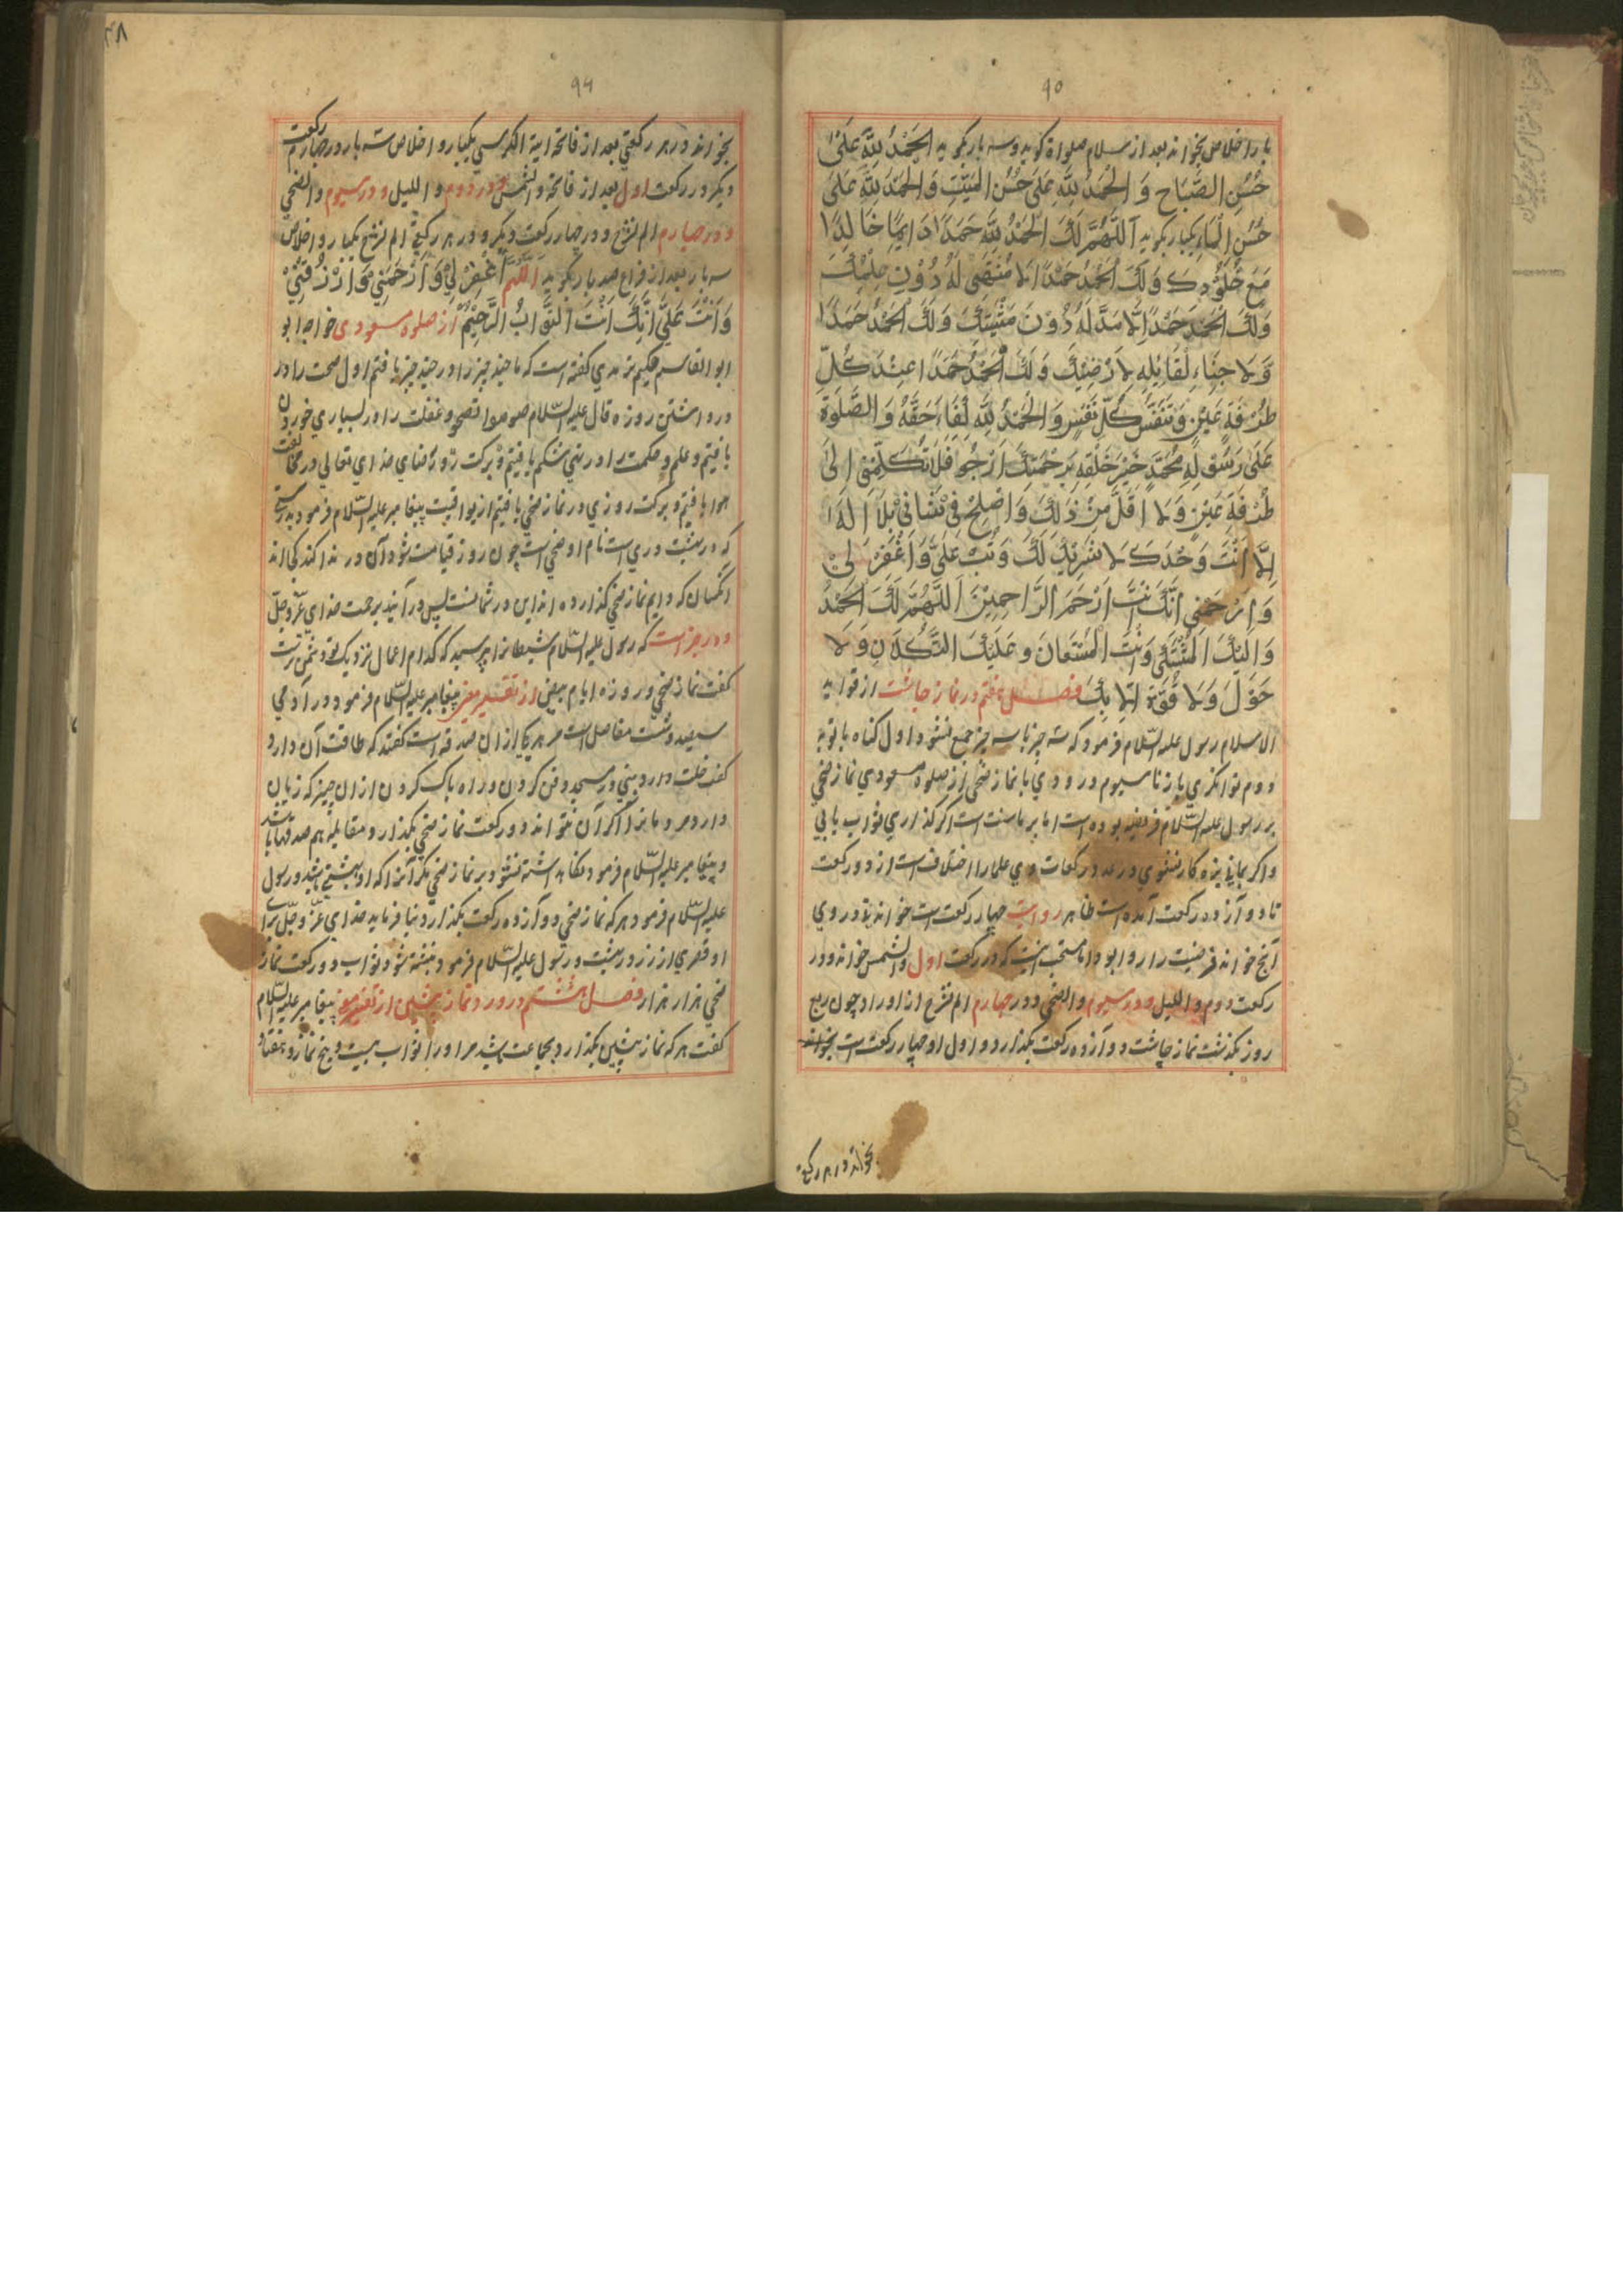 ۹۵
بار اخلاص بخواند بعد از سلام صلواة کوید و سه بار بکوید اَلحَمْدُ لِلّٰهِ عَلَیٰ
حُسْنِ الصَّبَاحِ وَ الْحَمْدُ لِلّٰهِ عَلَی حُسْنِ المَبِیْتِ وَ الحَمْدُ لِلّٰهِ عَلَیَ
حُسْنِ الْمَاءِ یکبار بکوید اَللّٰهُمَّ لَکَ الْحَمْدُ لِلّٰهِ حَمَدًا دَایِمًا خَالِدًا
مَعَ خُلُوْدِکَ وَلَکَ الْحَمْدُ حَمْدًا لَا مُنْتَهَی لَهُ دُوْنِ عِلْمِکَ
وَلَکَ الحَمْدُ حَمْدًا لَا مَدَّ لَهُ دُوْنَ مَشِیَّتِکَ وَلَکَ الْحَمْدُ حَمَدًا
وَلَا لِقَایِلِهِ لَا رَضِیْکَ وَلَکَ الحَمْدُ حَمَدًا عِنْدَ کُلِّ
طُرْفَةِ عَیْنٍ وَتَنَفُّسِ کُلِّ نَفَسٍ وَالْحَمْدُ لِلّٰهِ حَقَّهُ وَ الصَّلٰوةُ
عَلَی رَسُوْلِهِ مُحَمَّدٍ خَیْرِ خَلْقِهِ بِرَحْمَتِکَ اَرْجُوا فَلَا تَکِلْنِی اِلَیٰ
طُرْفَةِ عَیْنٍ وَلَا اَقَلَّ مِنْ ذٰلِکَ وَاَصْلِحْ فِیْ بِلَا اِلٰهَ
اِلَّا اَنْتَ وَحْدَکَ لَا شَرِیْکَ لَکَ وَتُبْ عَلَیَّ وَاغْفِرْ لِیْ
وَارْحَمْنِی اِنَّکَ اَنْتَ اَرْحَمُ الرَّاحِمِیْنَ اَللّٰهُمَّ لَکَ الحَمْدُ
وَاِلَیْکَ المُشْتَکَی وَاَنْتَ الْمُسْتَعَانُ وَعَلَیْکَ التُّکْلَانِ وَلَا
حَوْلَ وَلَا قُوَّةَ اِلَّا بِکَ فصل هفتم در نماز چاشت از فواید
الاسلام رسول علیه السّلام فرمود که سه چیز با سه چیز جمع نشود اول کناه با توبه
دوم توانکری با زنا سیوم درودی با نماز ضحی از صلوة مسعودی نماز ضحی
بر رسول علیه السّلام فریضه بوده است اما بر ما سنت است اکر کذاری ثواب یابی
واکر بمانی بزه کار نشوی در عدد رکعات وی علما را اختلاف است از دو رکعت
تا دوازده رکعت آمده است ظاهر روایت چهار رکعت است خوانند در وی
آنچ خواند فرضیت را روا بود اما مستحب اینست که در رکعت اول والشمس خواند ودر
رکعت دوم واللیل ودر سیوم والضحی ودر چهارم الم نشرح از اوراد چون ربع
روز بکذشت نماز چاشت دوازده رکعت بکذارد و اول او چهار رکعت است بخواند
بخواند در هر رکعة
۹۶
بخواند در هر رکعتی بعد از فاتحه ایة الکرسی یکبار و اخلاص سه بار در چهار رکعت
دیکر در رکعت اول بعد از فاتحه والشمس ودر دوم واللیل ودر سیوم والضحی
ودر چهارم الم نشرح ودر چهار رکعت دیکر ودر هر رکعتی الم نشرح یکبار و اخلاص
سه بار بعد از فراغ صد بار بکوید اَللّٰهُمَّ اغْفِرْ لِیْ وَ ارْحَمْنِی وَ ارْزُقْنِیْ
وَتُبْ عَلَیَّ اِنَّکَ اَنْتَ التَّوَّابُ الرَّحِیْمُ از صلوة مسعودی خواجه ابو
ابو القاسم حکیم ترمدی کفته است که ما چند چیز را در چند چیز یافتم اول صحت را در
در داشتن روزه قال علیه السّلام صوموا تصحو و غفلت را در بسیاری خوردن
یافتیم و علم و حکمت را در تهی شکم یافتیم و برکت روز رضای خدای تعالی در مخالفت
هوا یافتیم و برکت روزی در نماز ضحی یافتیم از یواقیت پیغامبر علیه السّلام فرمود بدرستی
که در بهشت دری است نام او ضحی است چون روز قیامت شود آن در ندا کند کجا اند
انکسان که دایم نماز ضحی کذارده اند این در شماست پس درآیند برحمت خدای عزّ وجلّ
ودر خبر است که رسول علیه السّلام شیطان را پرسید که کدام اعمال نزدیک تو دشمن ترست
کفت نماز ضحی و روزه ایام بیض از تفسیر مغنی پیغامبر علیه السّلام فرمود در آدمی
سیصد و شست مفاصل است بر هر یکی ازان صدقه است کفتند که طاقت آن دارد
کفت دارد بینی در مسجد دفن کردن و راه پاک کردن ازان چیز که زیان
دارد مردمانرا اکر آن نتواند دو رکعت نماز ضحی بکذارد مقابله هم صدقها باشد
و پیغامبر علیه السّلام فرمود نکاه داشته نشود بر نماز ضحی مکر آنرا که او بهشتی باشد و رسول
علیه السّلام فرمود هر که نماز ضحی دوازده رکعت بکذارد بنا فرماید خدای عزّ وجلّ برای
او قصری از زر در بهشت و رسول علیه السّلام فرمود نبشته شود ثواب دو رکعت نماز
ضحی هزار هزار فصل هشتم در ورد نماز پیشین از تفسیر مغنی پیغامبر علیه السّلام
کفت هر که نماز پیشین بکذارد بجماعت باشد مر او را ثواب بیست و پنج نماز و هفتاد